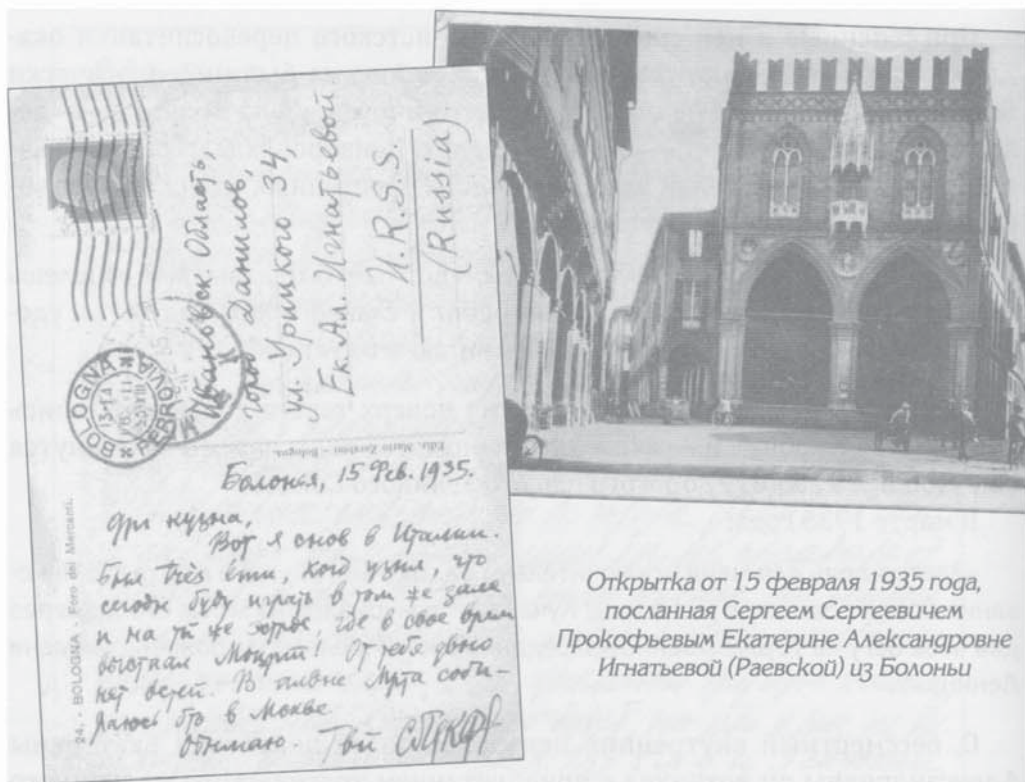 Ивановск Область,
город Данилов,
ул. Урицкого 34,
Ек. А. Игнатьевой
U.R.S.S.
(Russia)
BOLOGNA
FERROVIA
24. - BOLOGNA - Foro dei Mercanti.
Болонья, 15 Фев. 1935.
кузна,
Вот я снов в Италии.
Был très ému, когд узнл, что
сегодн буду играть в том же зале
и на тй же эстрде, где в свое врем
выступал Моцрт. От тебя двно
нет вестй. В начле Мрта соби-
раюсь бть в Москве
Обнимаю Твй СПркфв
Открытка от 15 февраля 1935 года,
посланная Сергеем Сергеевичем
Прокофьевым Екатерине Александровне
Игнатьевой (Раевской) из Болоньи